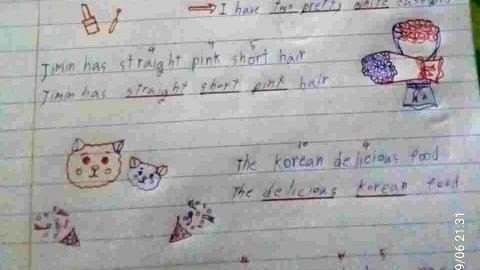 I have two pretty white
4 5
Jimin has straight pink short hair
Jimin has straight short pink hair
10 4
The Korean delicious food
The delicious Korean food
9/06 21:31